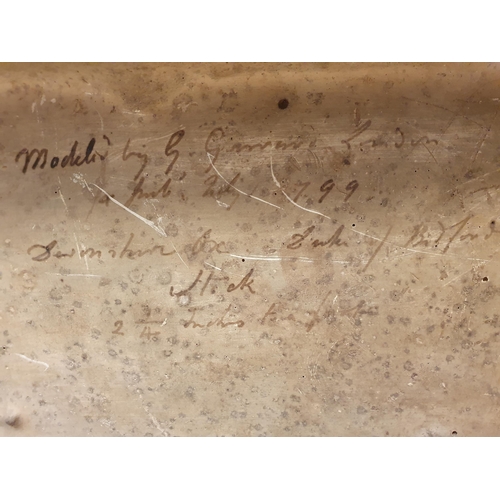 Model'd by G. Garrard London
Pub. July 1799
Devonshire Ox Duke of Bedford
Stock
2 Inches to a foot